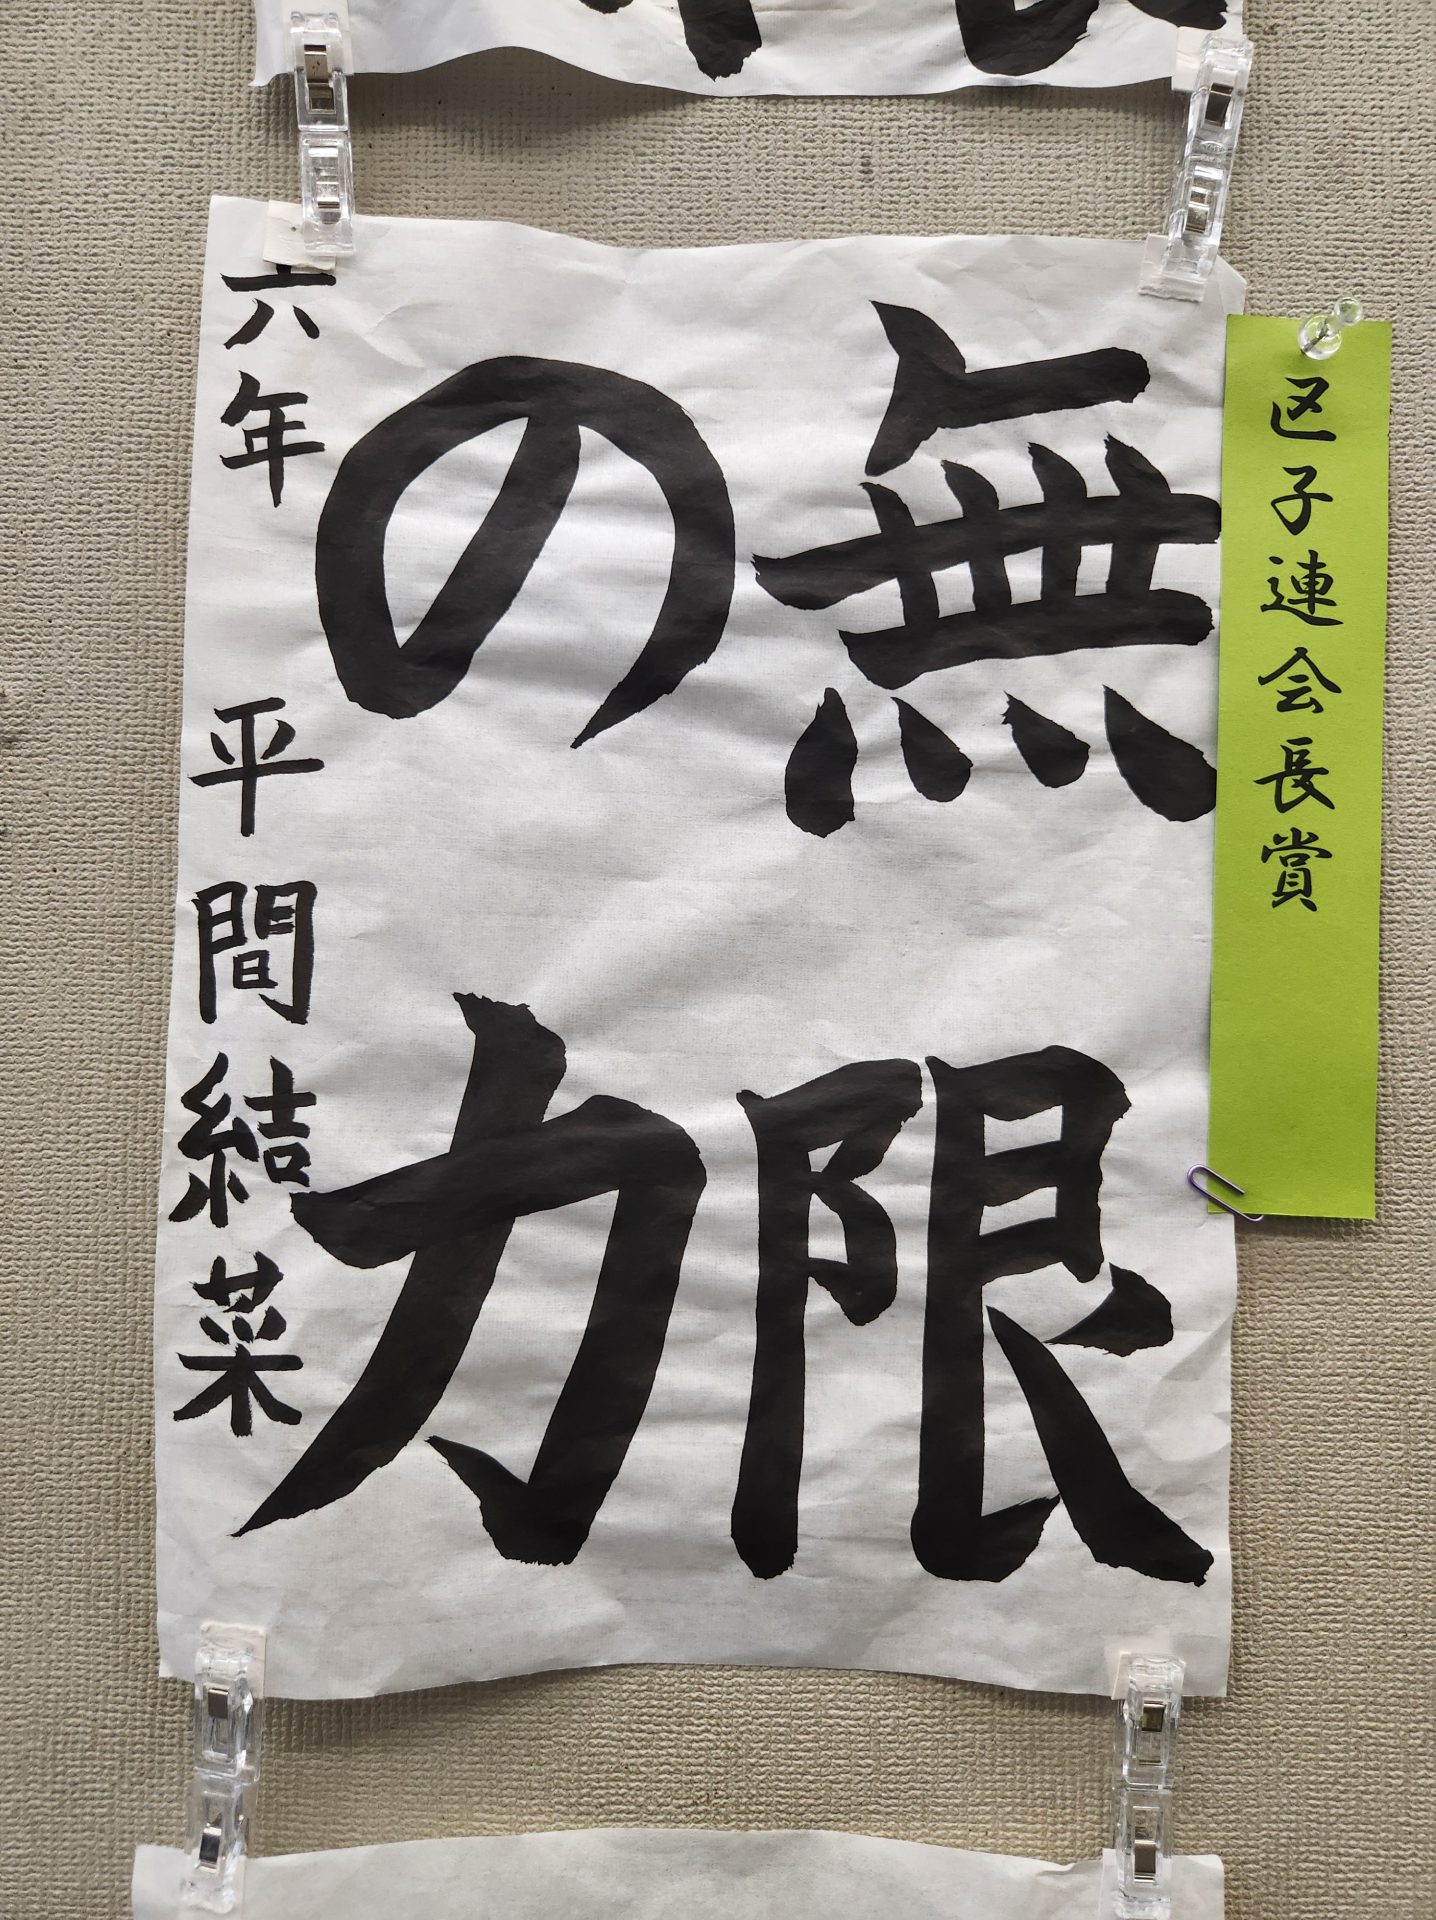 区子連会長賞
無限
の力
六年 平間結菜